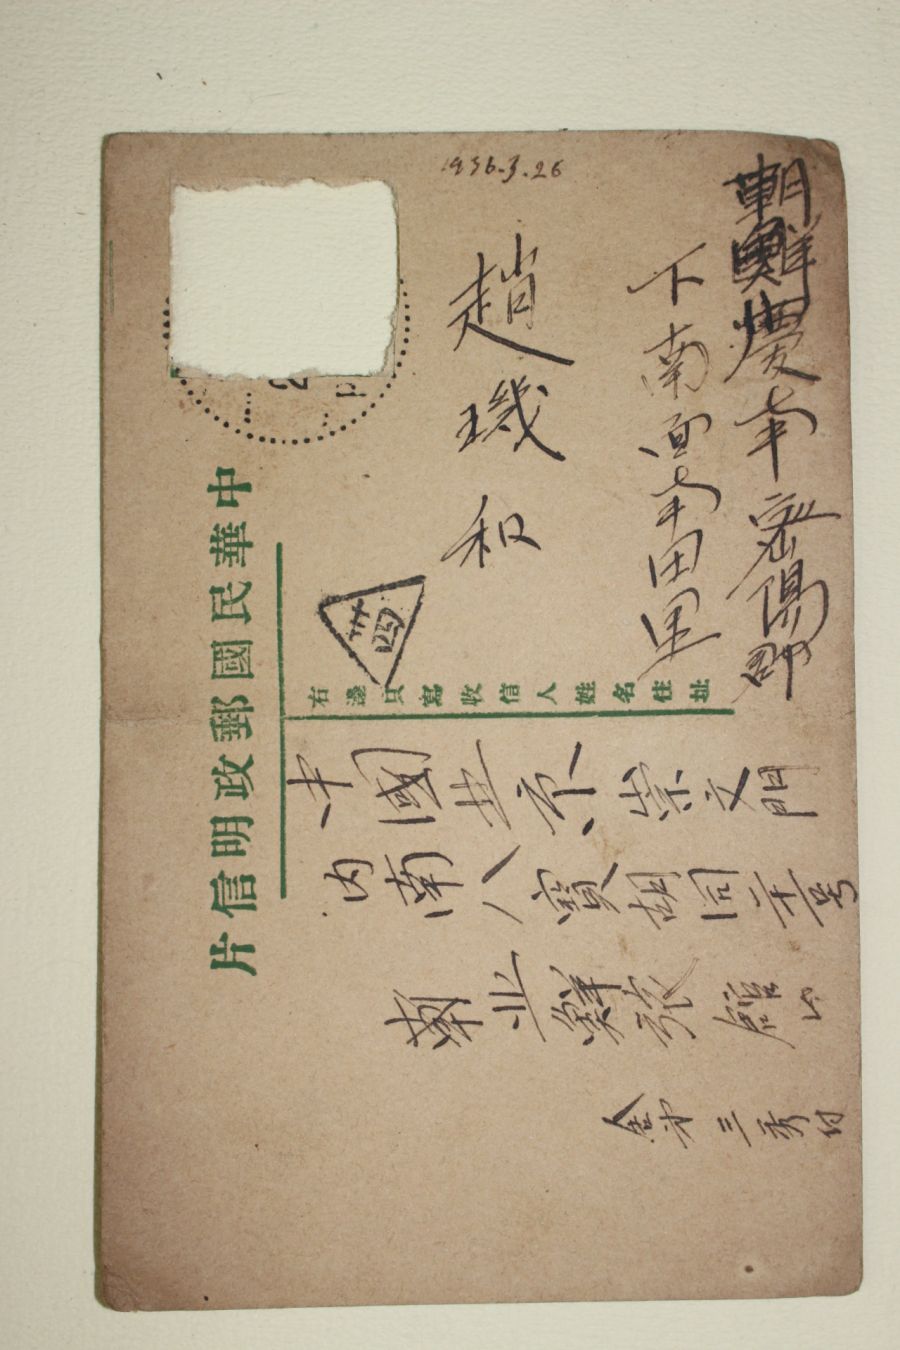 1936.3.26
朝鮮慶南密陽郡
下南面南田里
趙璣和
中華民國郵政明信片
右邊只寫收信人姓名住址
中國北平崇文門
内南八寶胡同二十号
北鮮旅館
金 三秀付